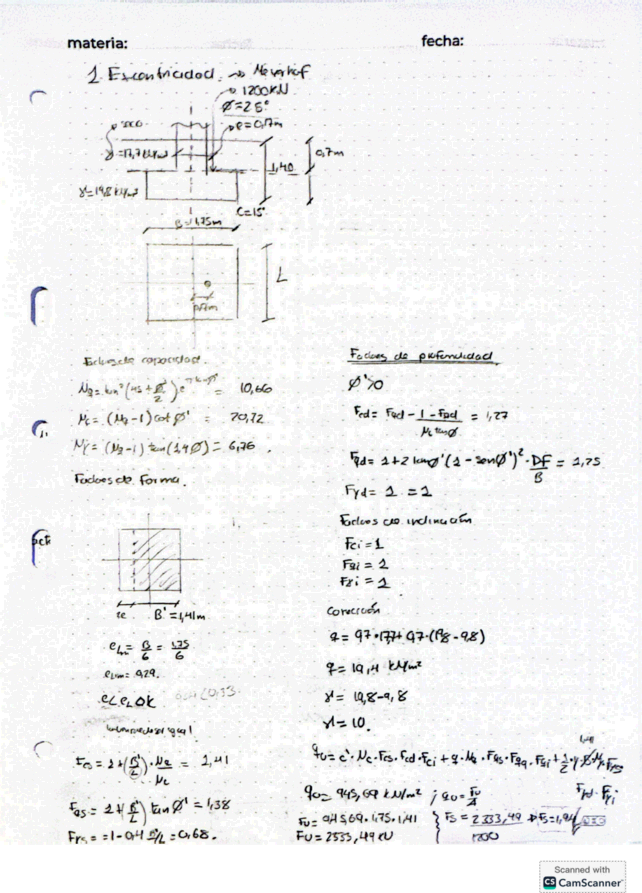 materia:
fecha:
1. Excentricidad. → Meyerhof
1200KN
Ø=25°
e=0,17m
γ=17,7 KN/m³
0,7m
1,40
γ=19,8 KN/m³
C=15
B=1,75m
L
Factores de capacidad.
Nq=tan²(45+Ø/2)e^πtanØ = 10,66
Nc=(Nq-1)cotØ' = 20,72
Nγ=(Nq-1)tan(1,4Ø)= 6,76
Factores de Forma.
2e B'=1,41m
eLm= B/6 = 1,75/6
eLim= 0,29.
e<eL OK
Fcs= 1+(B'/L)·Nq/Nc = 1,41
Fqs= 1+(B'/L)tanØ'=1,38
Fγs= 1-0,4 B'/L=0,68.
Factores de profundidad
Ø'>0
Fcd= Fqd-1-Fqd/Nc tanØ = 1,27
Fqd= 1+2tanØ'(1-senØ')²·DF/B = 1,25
Fγd= 1 =1
Factores de inclinación
Fci=1
Fqi=1
Fγi=1
Corrección
q= 0,7·17,7+0,7·(19,8-9,8)
q= 19,4 KN/m²
γ'= 19,8-9,8
γ'= 10.
qu= c'·Nc·Fcs·Fcd·Fci+q·Nq·Fqs·Fqd·Fqi+1/2·γ·B'·Nγ·Fγs
Fγd·Fγi
qu= 945,69 KN/m² ; qu= Fu/A
Fu= 945,69·1,75·1,41
Fu= 2333,49 KN
Fs= 2333,49/1200 → Fs=1,94
Scanned with
CS CamScanner